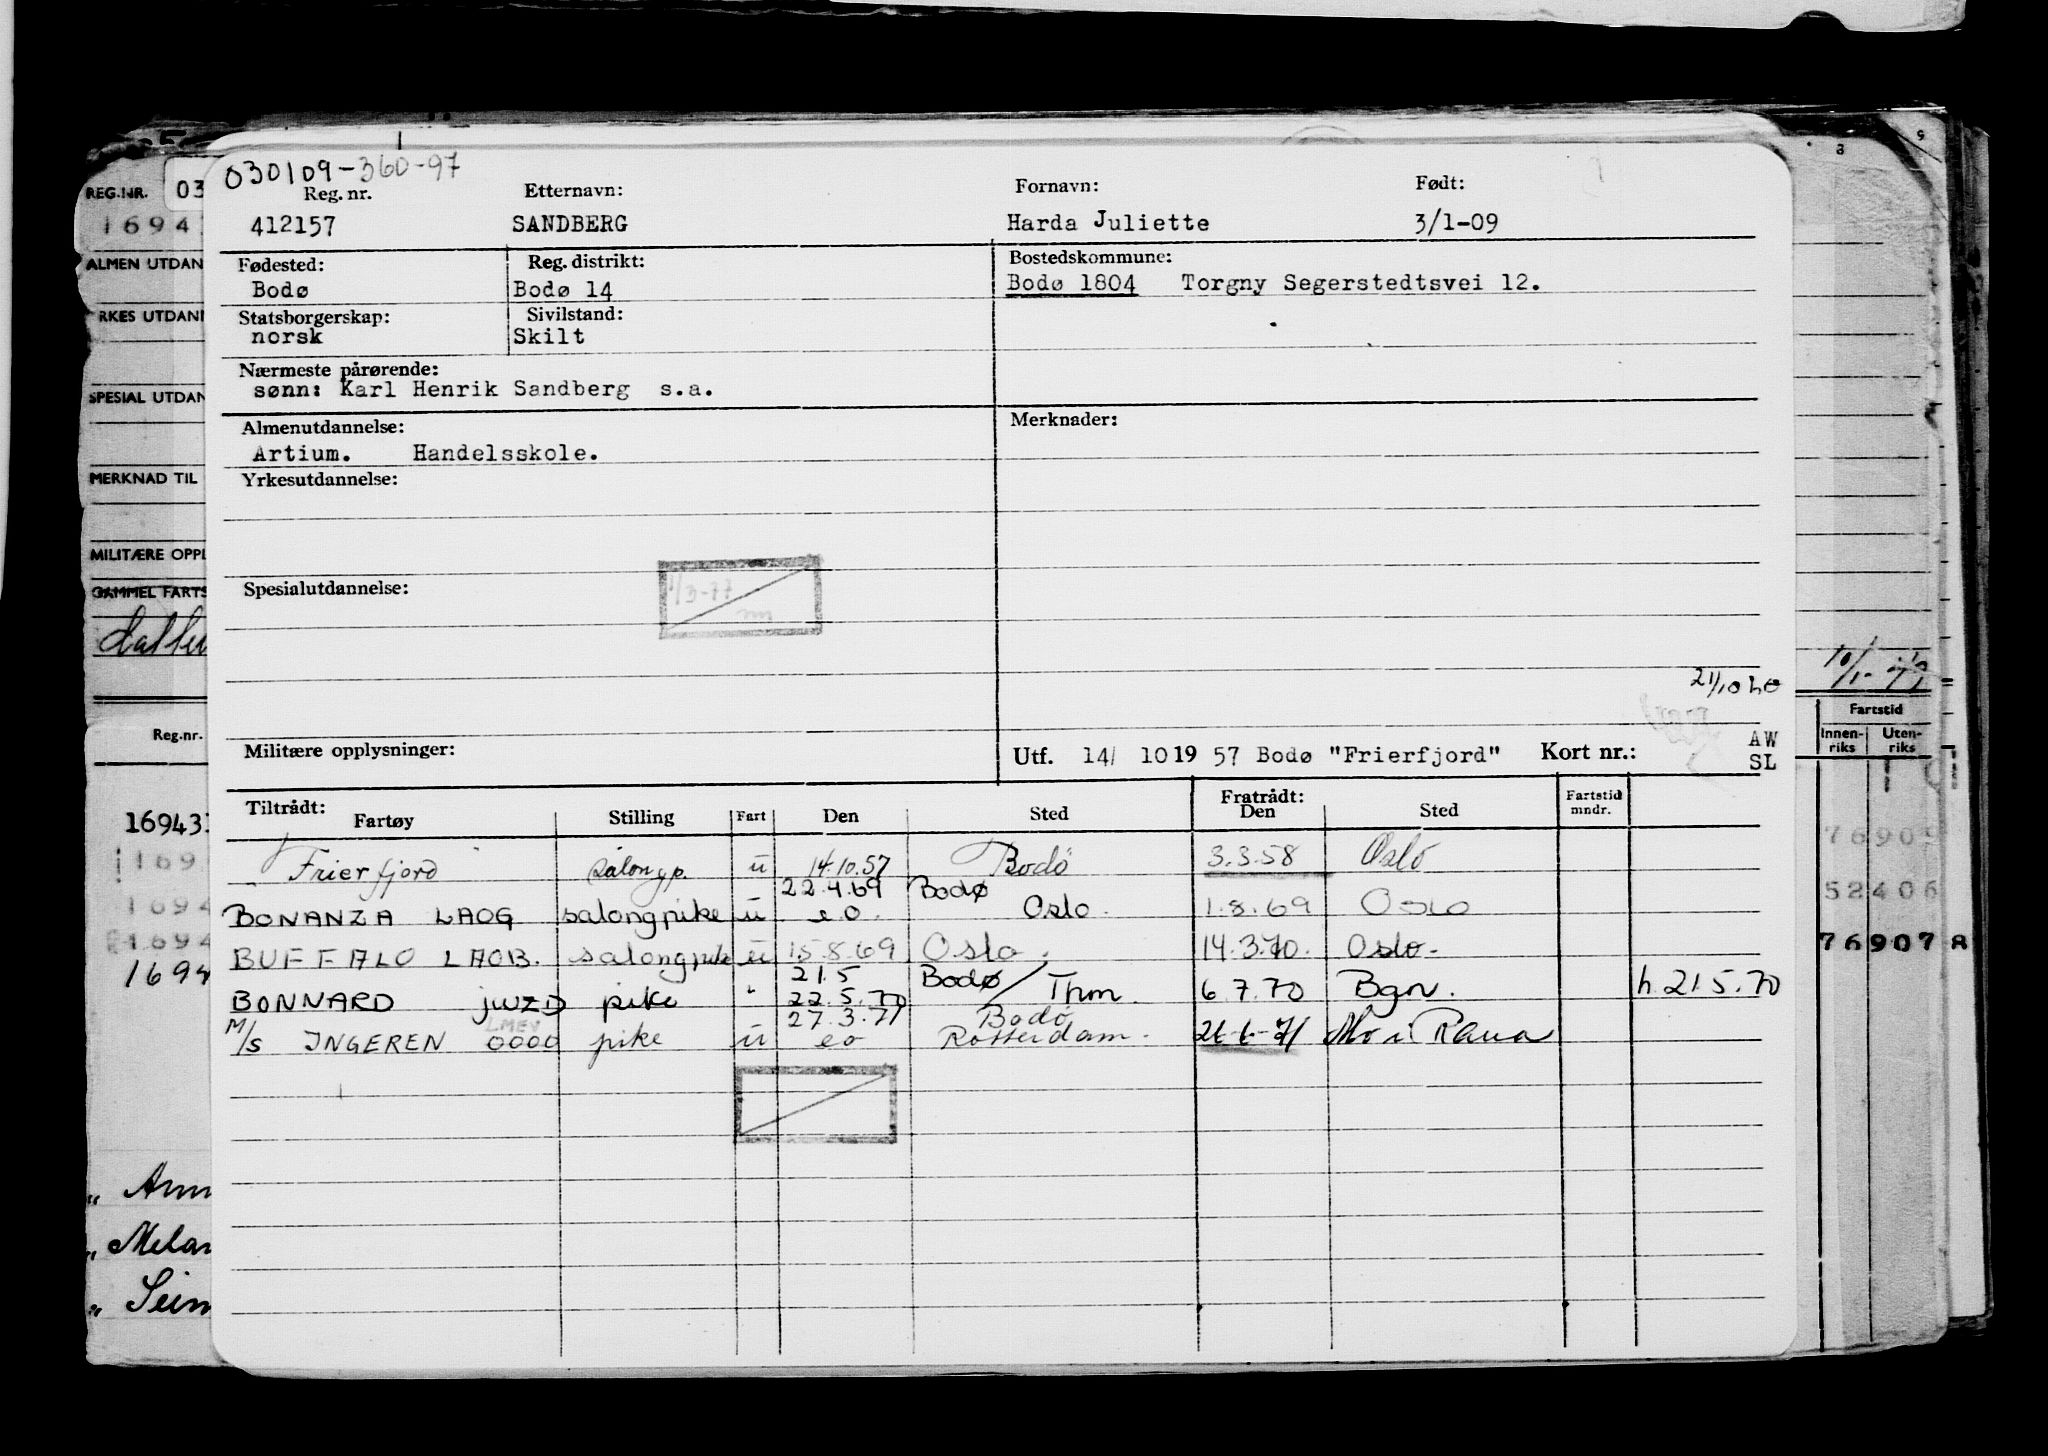 030109-360-97
Reg. nr. Etternavn: Fornavn: Født:
412157 SANDBERG Harda Juliette 3/1-09
Fødested: Reg. distrikt: Bostedskommune:
Bodø Bodø 14 Bodø 1804 Torgny Segerstedtsvei 12.
Statsborgerskap: Sivilstand:
norsk Skilt
Nærmeste pårørende:
sønn: Karl Henrik Sandberg s.a.
Almenutdannelse: Merknader:
Artium. Handelsskole.
Yrkesutdannelse:
Spesialutdannelse:
1/3-77
21/10
Militære opplysninger: Utf. 14/ 10 19 57 Bodø "Frierfjord" Kort nr.: AW
SL
Tiltrådt: Fratrådt:
Fartøy Stilling Fart Den Sted Den Sted Fartstid mndr.
Frierfjord salongp. u 14.10.57 Bodø 3.3.58 Oslo
22.4.69 Bodø
BONANZA LAOG salongpike u eo. Oslo. 1.8.69 Oslo
BUFFALO LAOB. salongpike u 15.8.69 Oslo. 14.3.70. Oslo.
21.5 Bodø/
BONNARD JWZD pike " 22.5.70 Thm. 6.7.70 Bgn. h. 21.5.70
27.3.71 Bodø
LMEV
M/s INGEREN 0000 pike u eo Rotterdam. Mo i Rana
REG.NR. 03
1694
ALMEN UTDAN
RKES UTDANN
SPESIAL UTDAN
MERKNAD TIL
MILITÆRE OPPL
GAMMEL FARTS
Reg.nr.
16943
169
1694
1694
1694
" Ann
" Melan
" Sein
8 9
10/1-
Fartstid
Innen-riks Uten-riks
76909
52406
76907 8